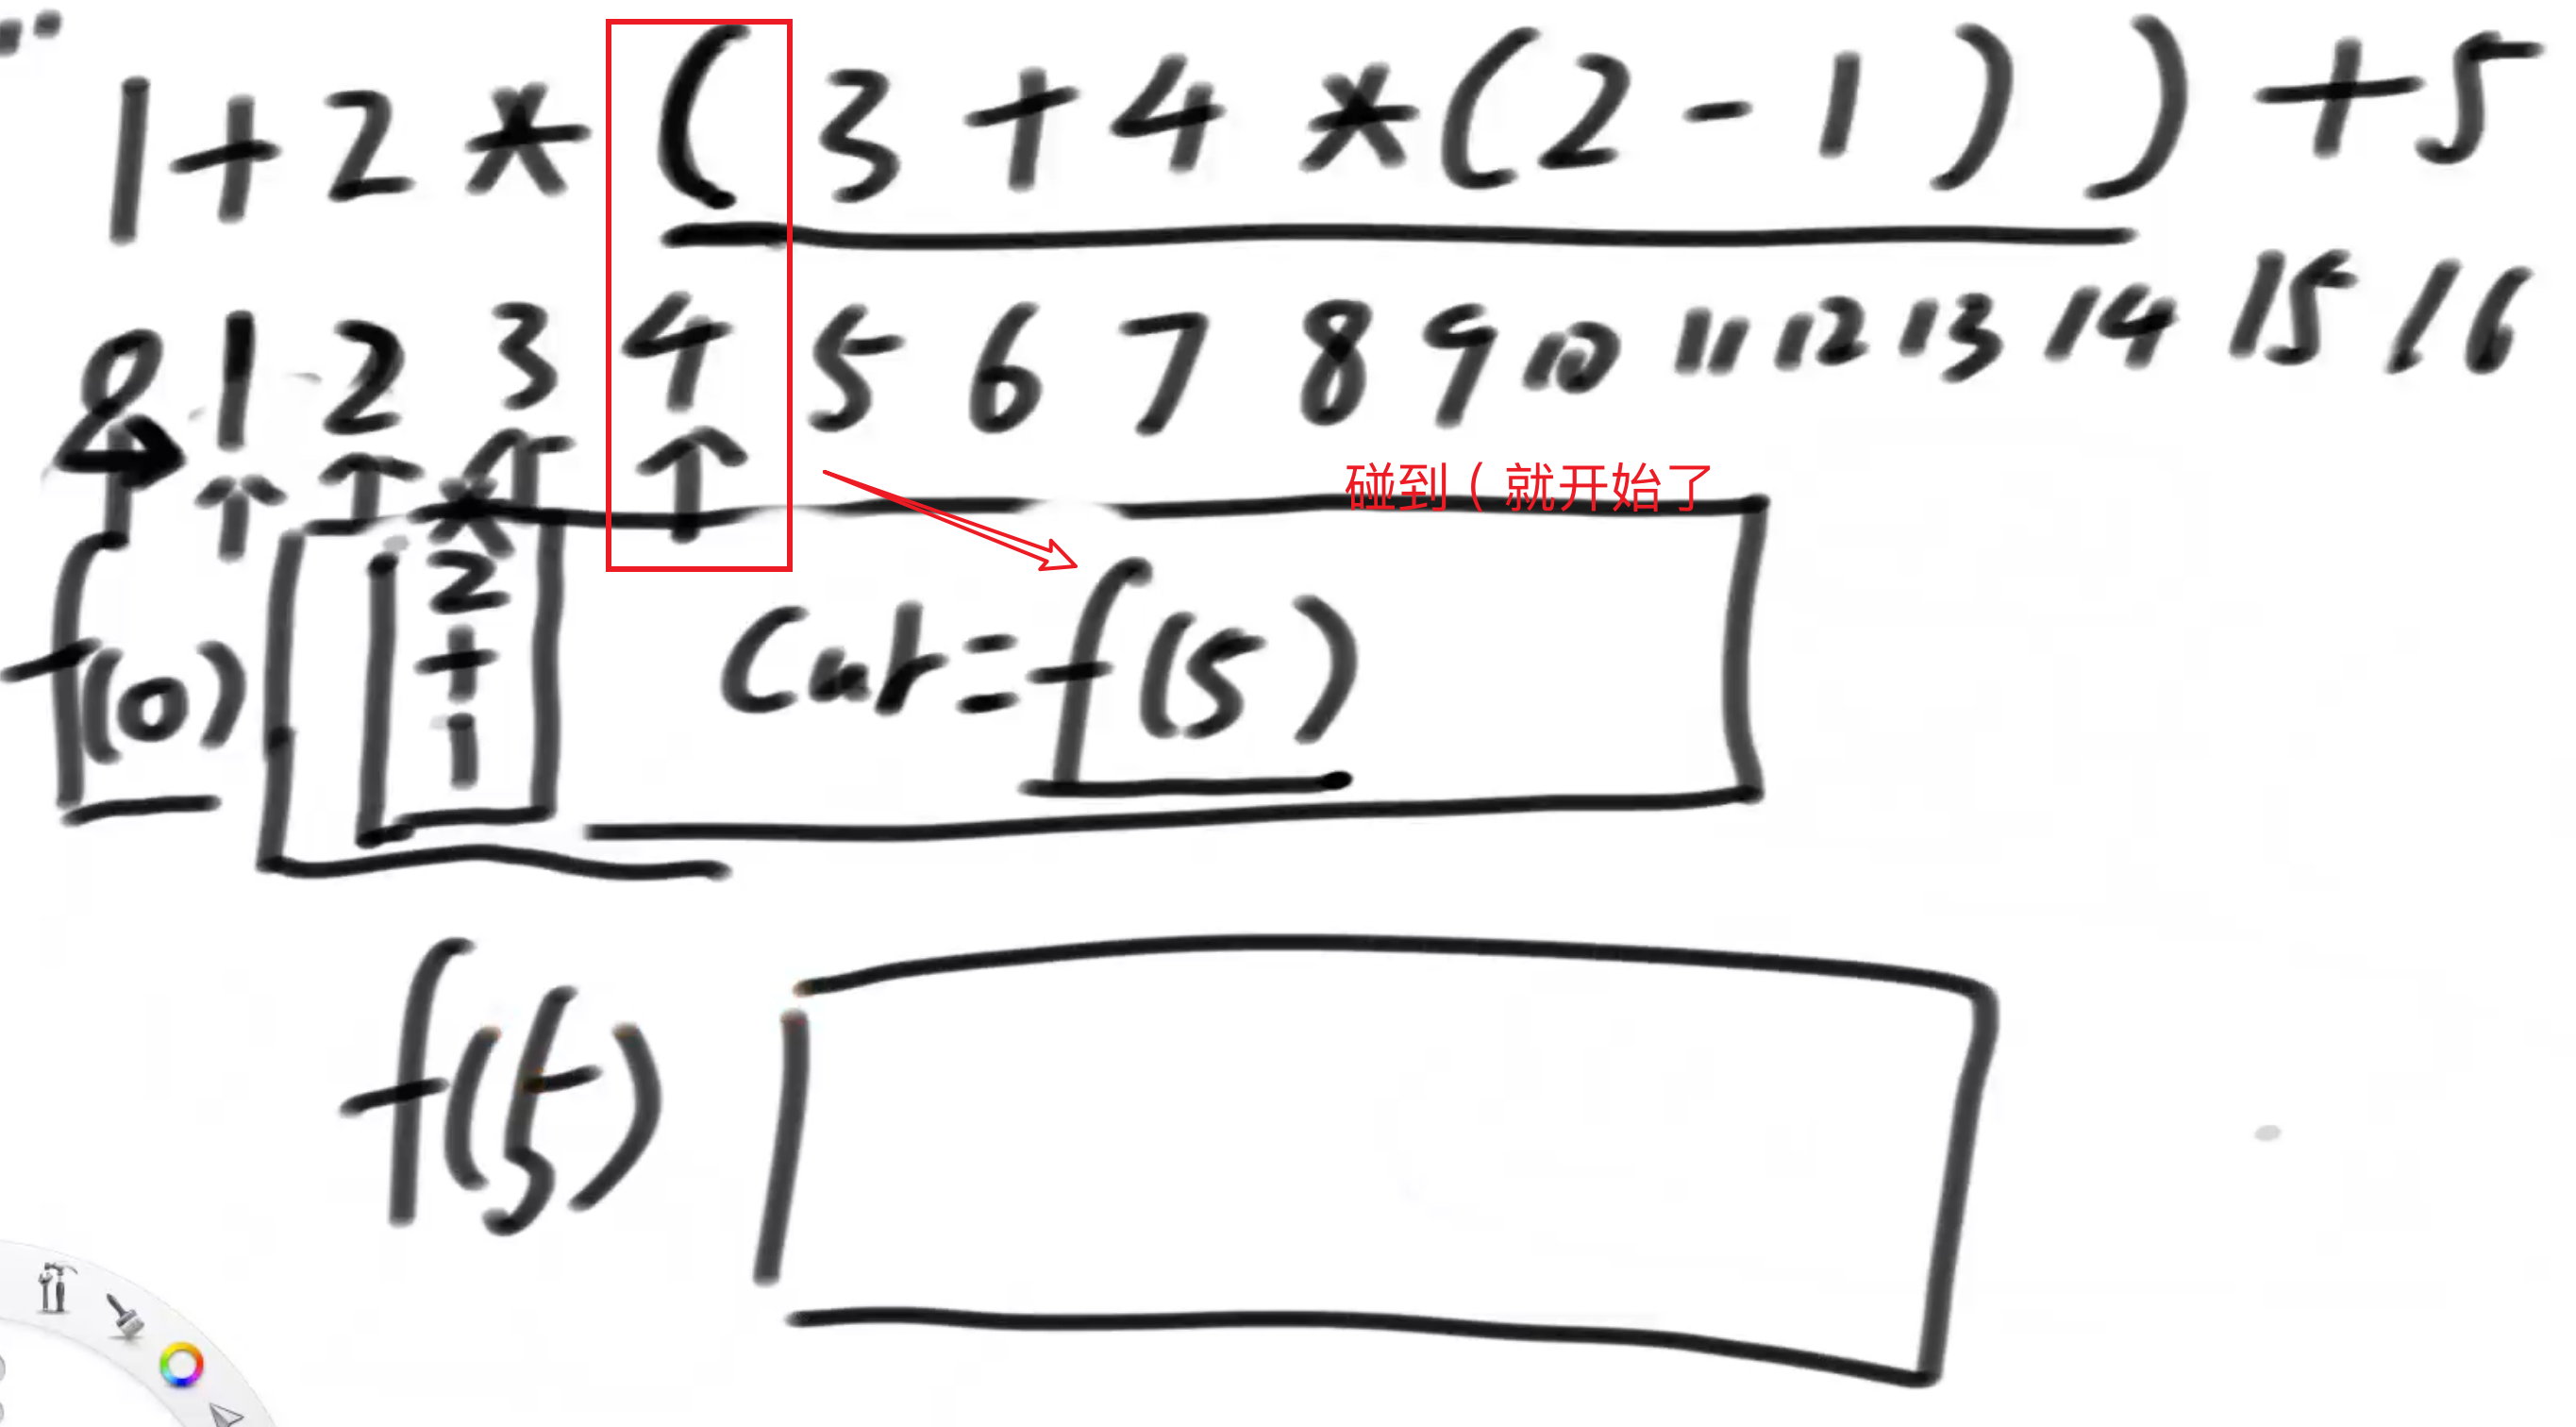 1+2*(3+4*(2-1))+5
0 1 2 3 4 5 6 7 8 9 10 11 12 13 14 15 16
碰到（就开始了
f(0)
*
2
+
1
Cur=f(5)
f(5)